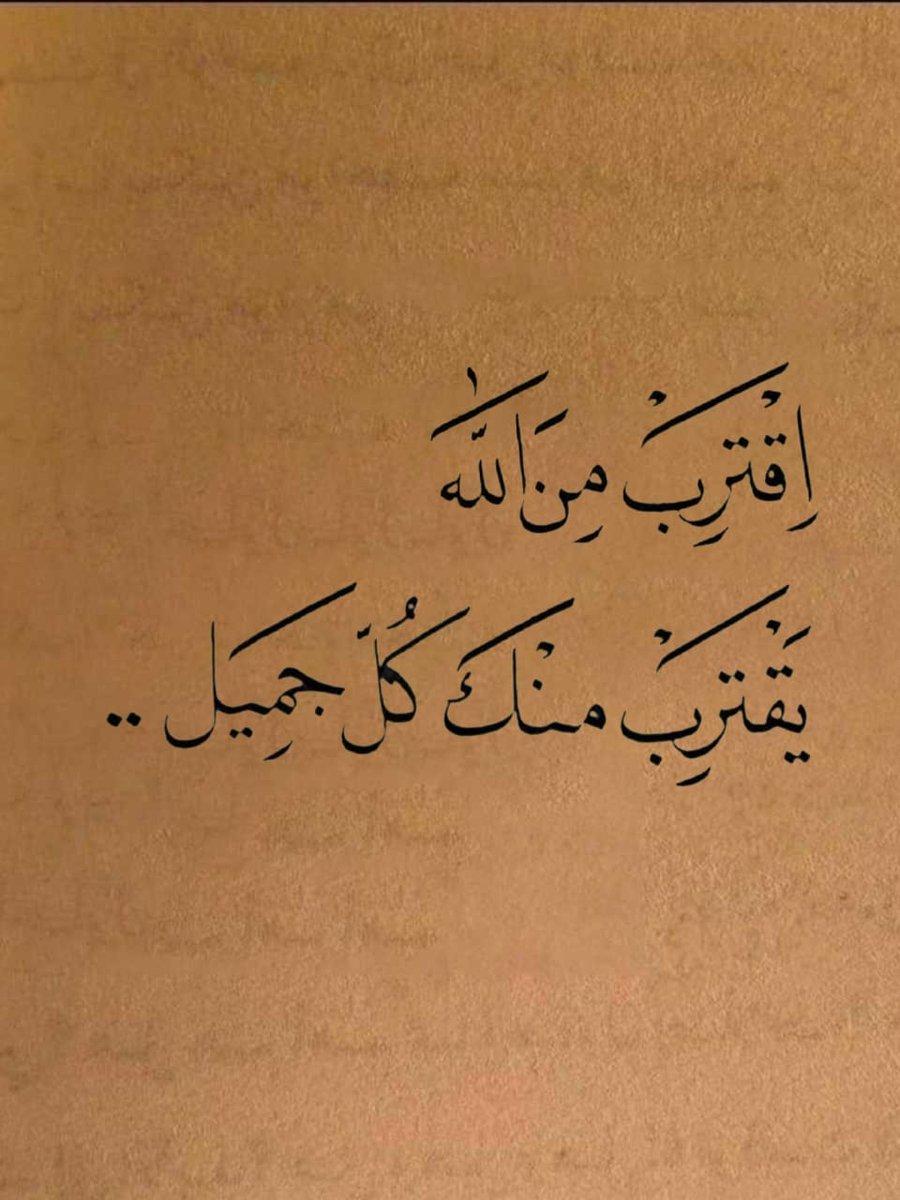 اِقْتَرِبْ مِنَ اللّٰه
يَقْتَرِبْ منْكَ كُلّ جَمِيَل ..